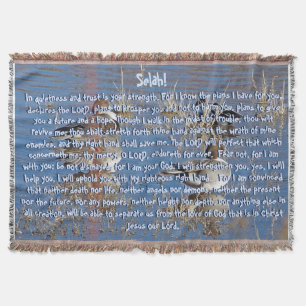 Selah!
In quietness and trust is your strength. For I know the plans I have for you,
declares the LORD, plans to prosper you and not to harm you, plans to give
you a future and a hope. Though I walk in the midst of trouble, thou wilt
revive me: thou shalt stretch forth thine hand against the wrath of mine
enemies, and thy right hand shall save me. The LORD will perfect that which
concerneth me: thy mercy, O LORD, endureth for ever. Fear not, for I am
with you; be not dismayed, for I am your God. I will strengthen you, yes, I will
help you, I will uphold you with My righteous right hand. For I am convinced
that neither death nor life, neither angels nor demons, neither the present
nor the future, nor any powers, neither height nor depth, nor anything else in
all creation, will be able to separate us from the love of God that is in Christ
Jesus our Lord.